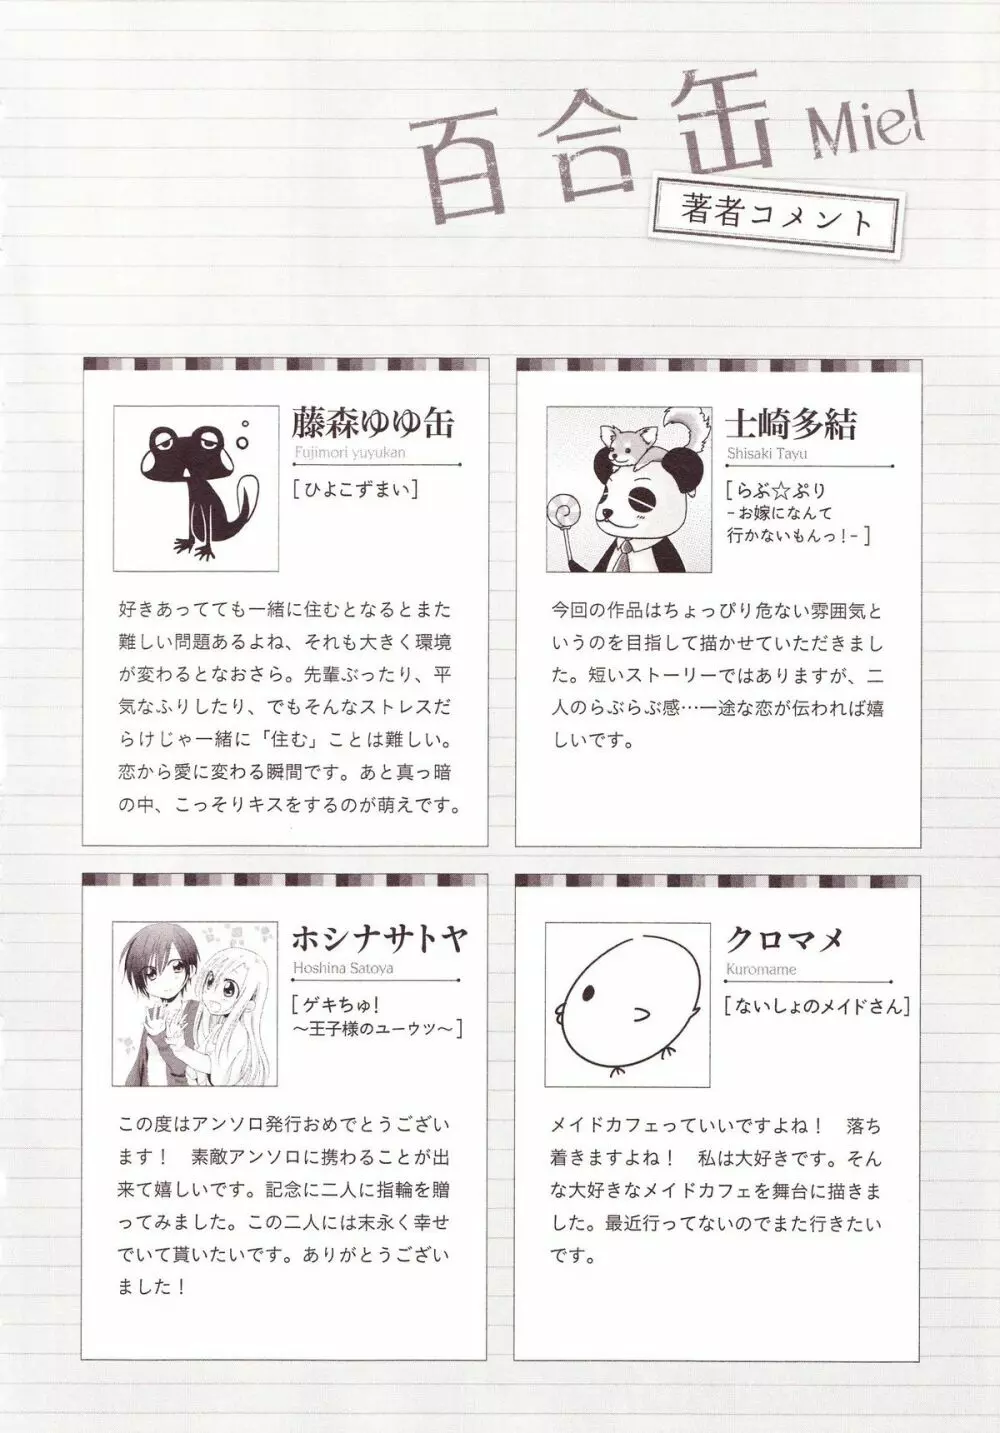 百合缶 Miel
著者コメント
藤森ゆゆ缶
Fujimori yuyukan
[ひよこずまい]
好きあってても一緒に住むとなるとまた
難しい問題あるよね、それも大きく環境
が変わるとなおさら。先輩ぶったり、平
気なふりしたり、でもそんなストレスだ
らけじゃ一緒に「住む」ことは難しい。
恋から愛に変わる瞬間です。あと真っ暗
の中、こっそりキスをするのが萌えです。
士崎多結
Shisaki Tayu
[らぶ☆ぷり
-お嫁になんて
行かないもんっ!-]
今回の作品はちょっぴり危ない雰囲気と
いうのを目指して描かせていただきまし
た。短いストーリーではありますが、二
人のらぶらぶ感…一途な恋が伝われば嬉
しいです。
ホシナサトヤ
Hoshina Satoya
[ゲキちゅ!
〜王子様のユーウツ〜]
この度はアンソロ発行おめでとうござい
ます！　素敵アンソロに携わることが出
来て嬉しいです。記念に二人に指輪を贈
ってみました。この二人には末永く幸せ
でいて貰いたいです。ありがとうござい
ました！
クロマメ
Kuromame
[ないしょのメイドさん]
メイドカフェっていいですよね！　落ち
着きますよね！　私は大好きです。そん
な大好きなメイドカフェを舞台に描きま
した。最近行ってないのでまた行きたい
です。